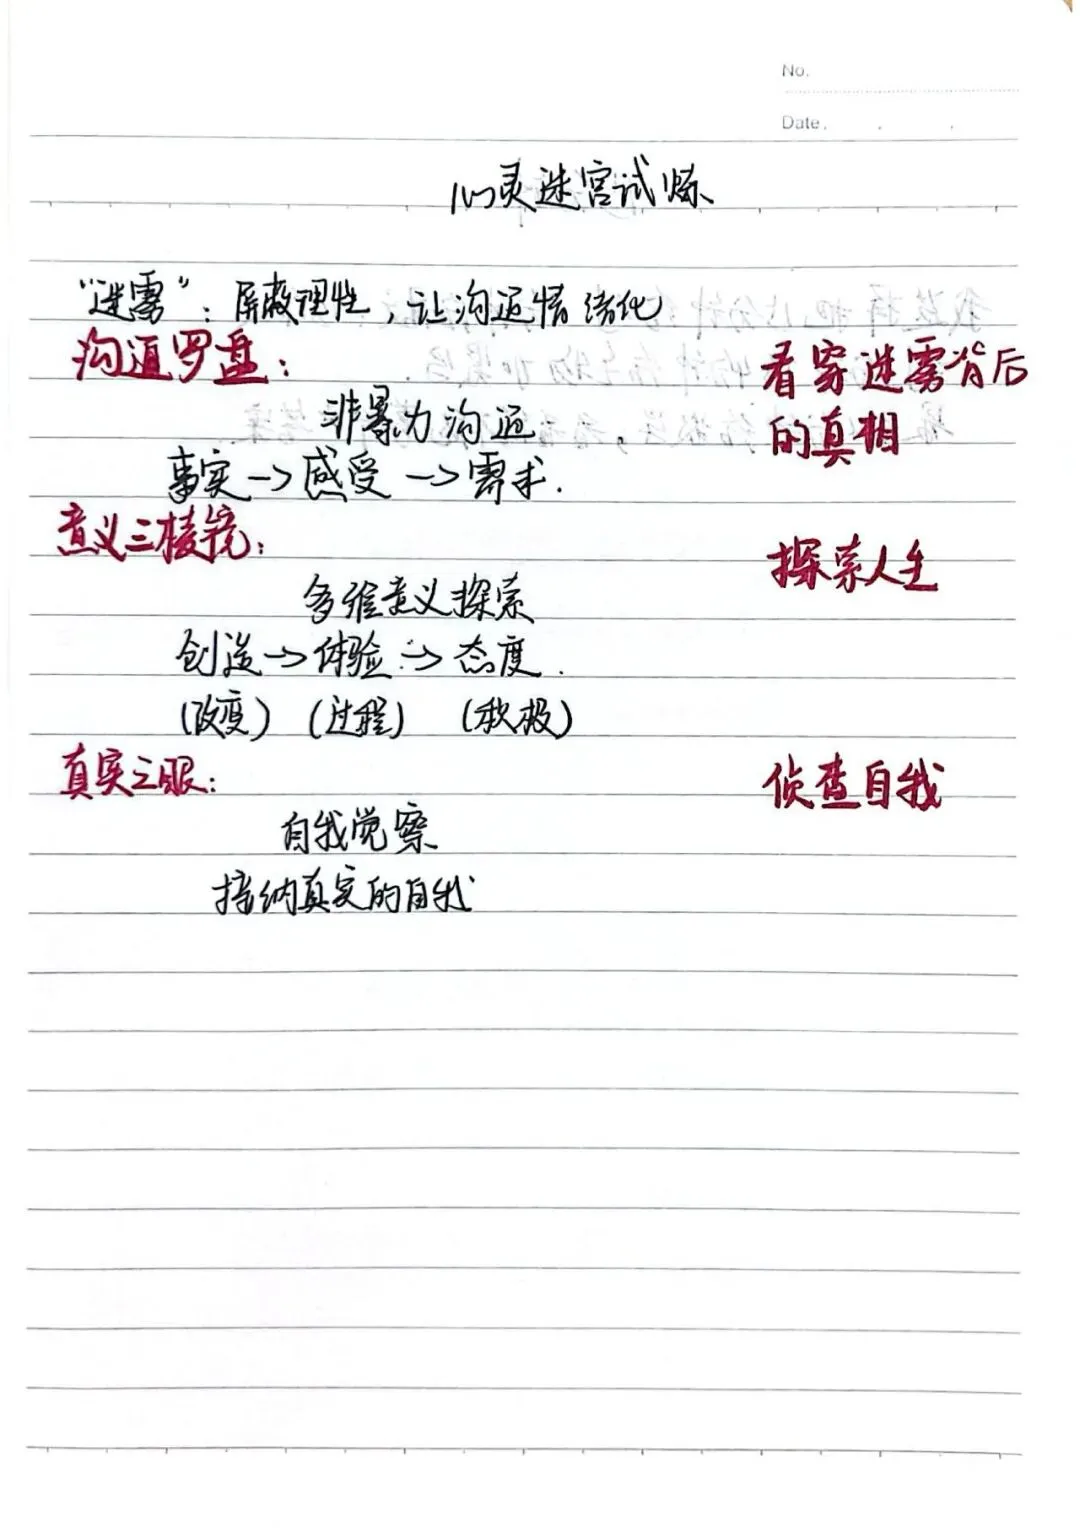 No.
Date.
心灵迷宫试炼
“迷雾”：屏蔽理性，让沟通情绪化
沟通罗盘：
看穿迷雾背后
的真相
非暴力沟通
事实→感受→需求.
意义三棱镜：
探索人生
多维意义探索
创造→体验→态度.
(改变) (过程) (积极)
真实之眼：
侦查自我
自我觉察
接纳真实的自我